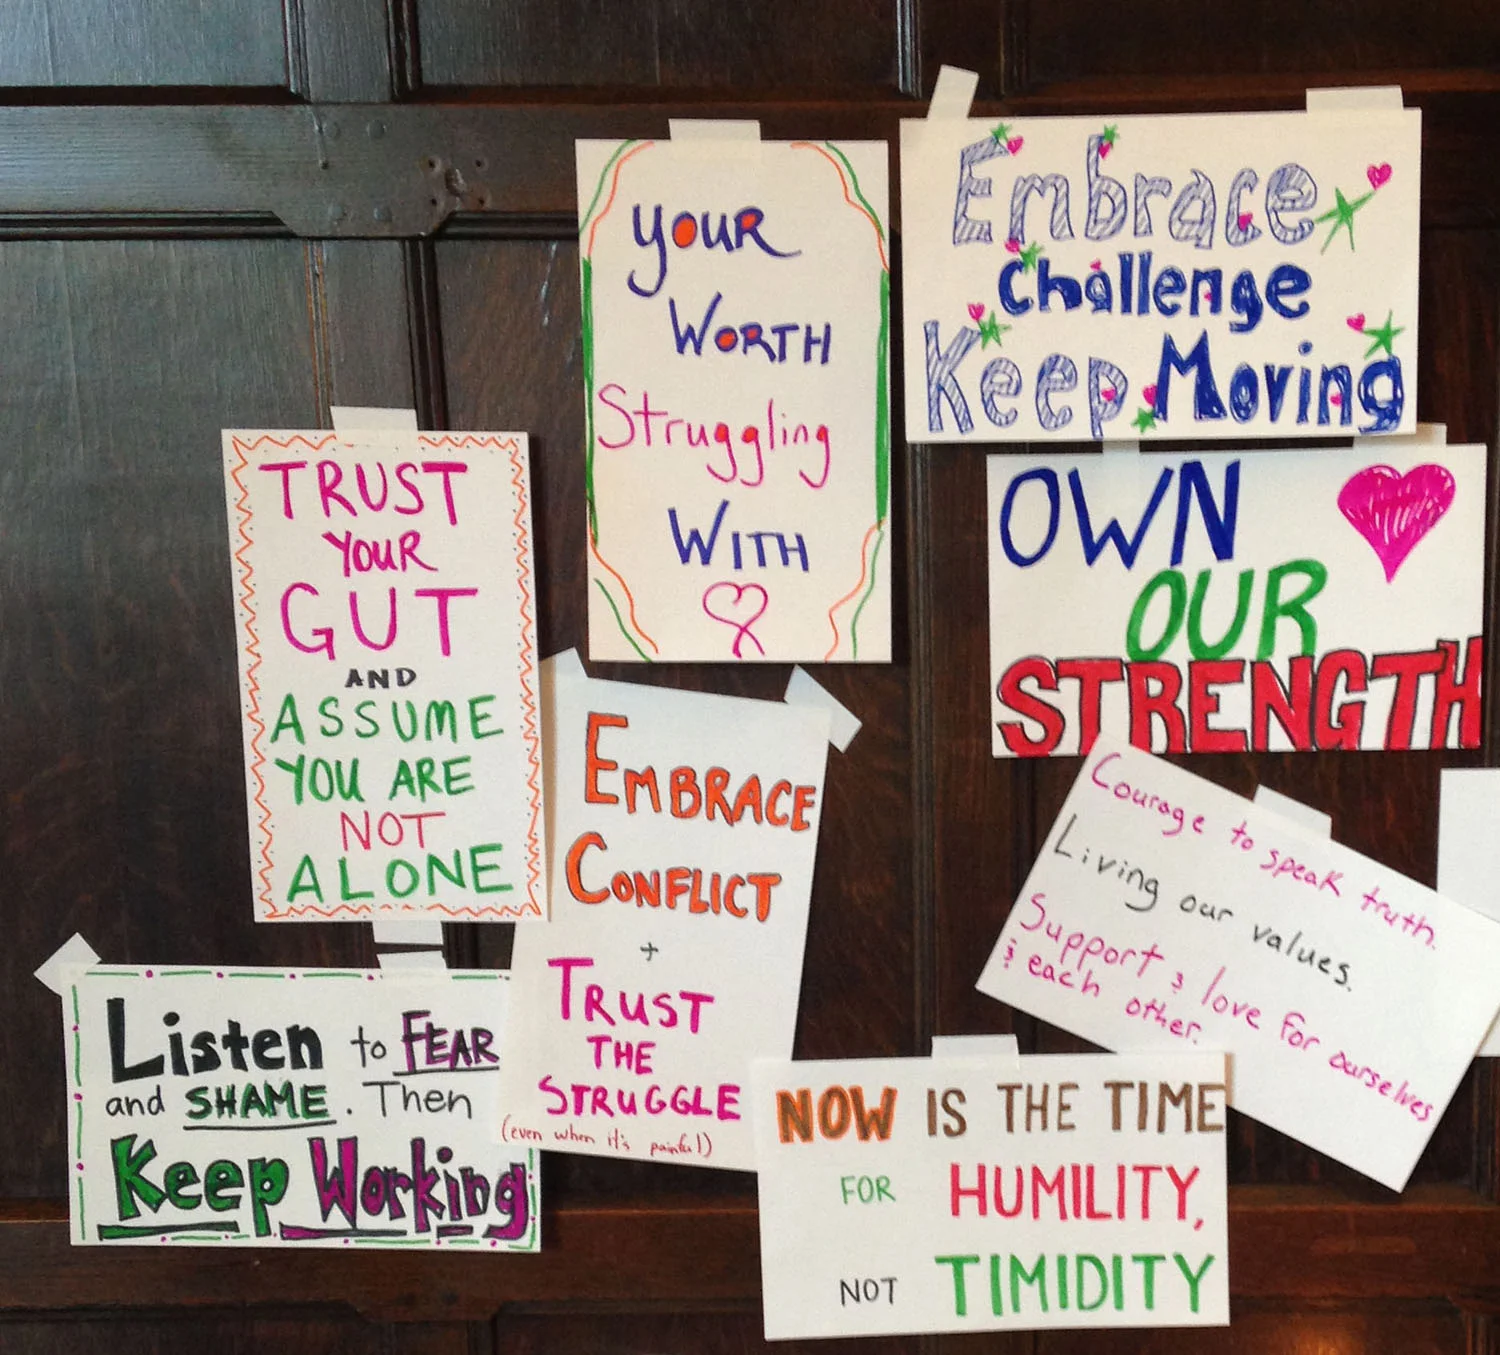 YOUR
WORTH
Struggling
WITH
Embrace
Challenge
Keep Moving
TRUST
YOUR
GUT
AND
ASSUME
YOU ARE
NOT
ALONE
OWN
OUR
STRENGTH
EMBRACE
CONFLICT
+
TRUST
THE
STRUGGLE
(even when it's painful)
Courage to speak truth.
Living our values.
Support & love for ourselves
& each other.
Listen to FEAR
and SHAME. Then
Keep Working
NOW IS THE TIME
FOR HUMILITY,
NOT TIMIDITY